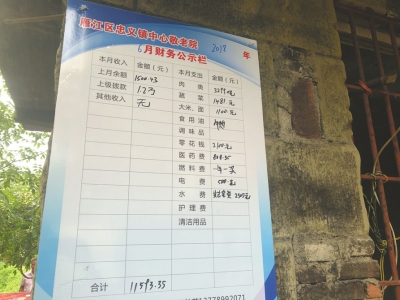 雁江区忠义镇中心敬老院
2018 年
6月财务公示栏
本月收入 金额(元) 本月支出 金额(元)
上月余额 1500.43 肉类
上级拨款 12万 蔬菜 1481元
其他收入 元 大米、面 1100元
食用油
调味品
零花钱 2300元
医药费 808.35
燃料费 一年一买
电费 500元
水费
护理费
清洁用品
合计 11593.35